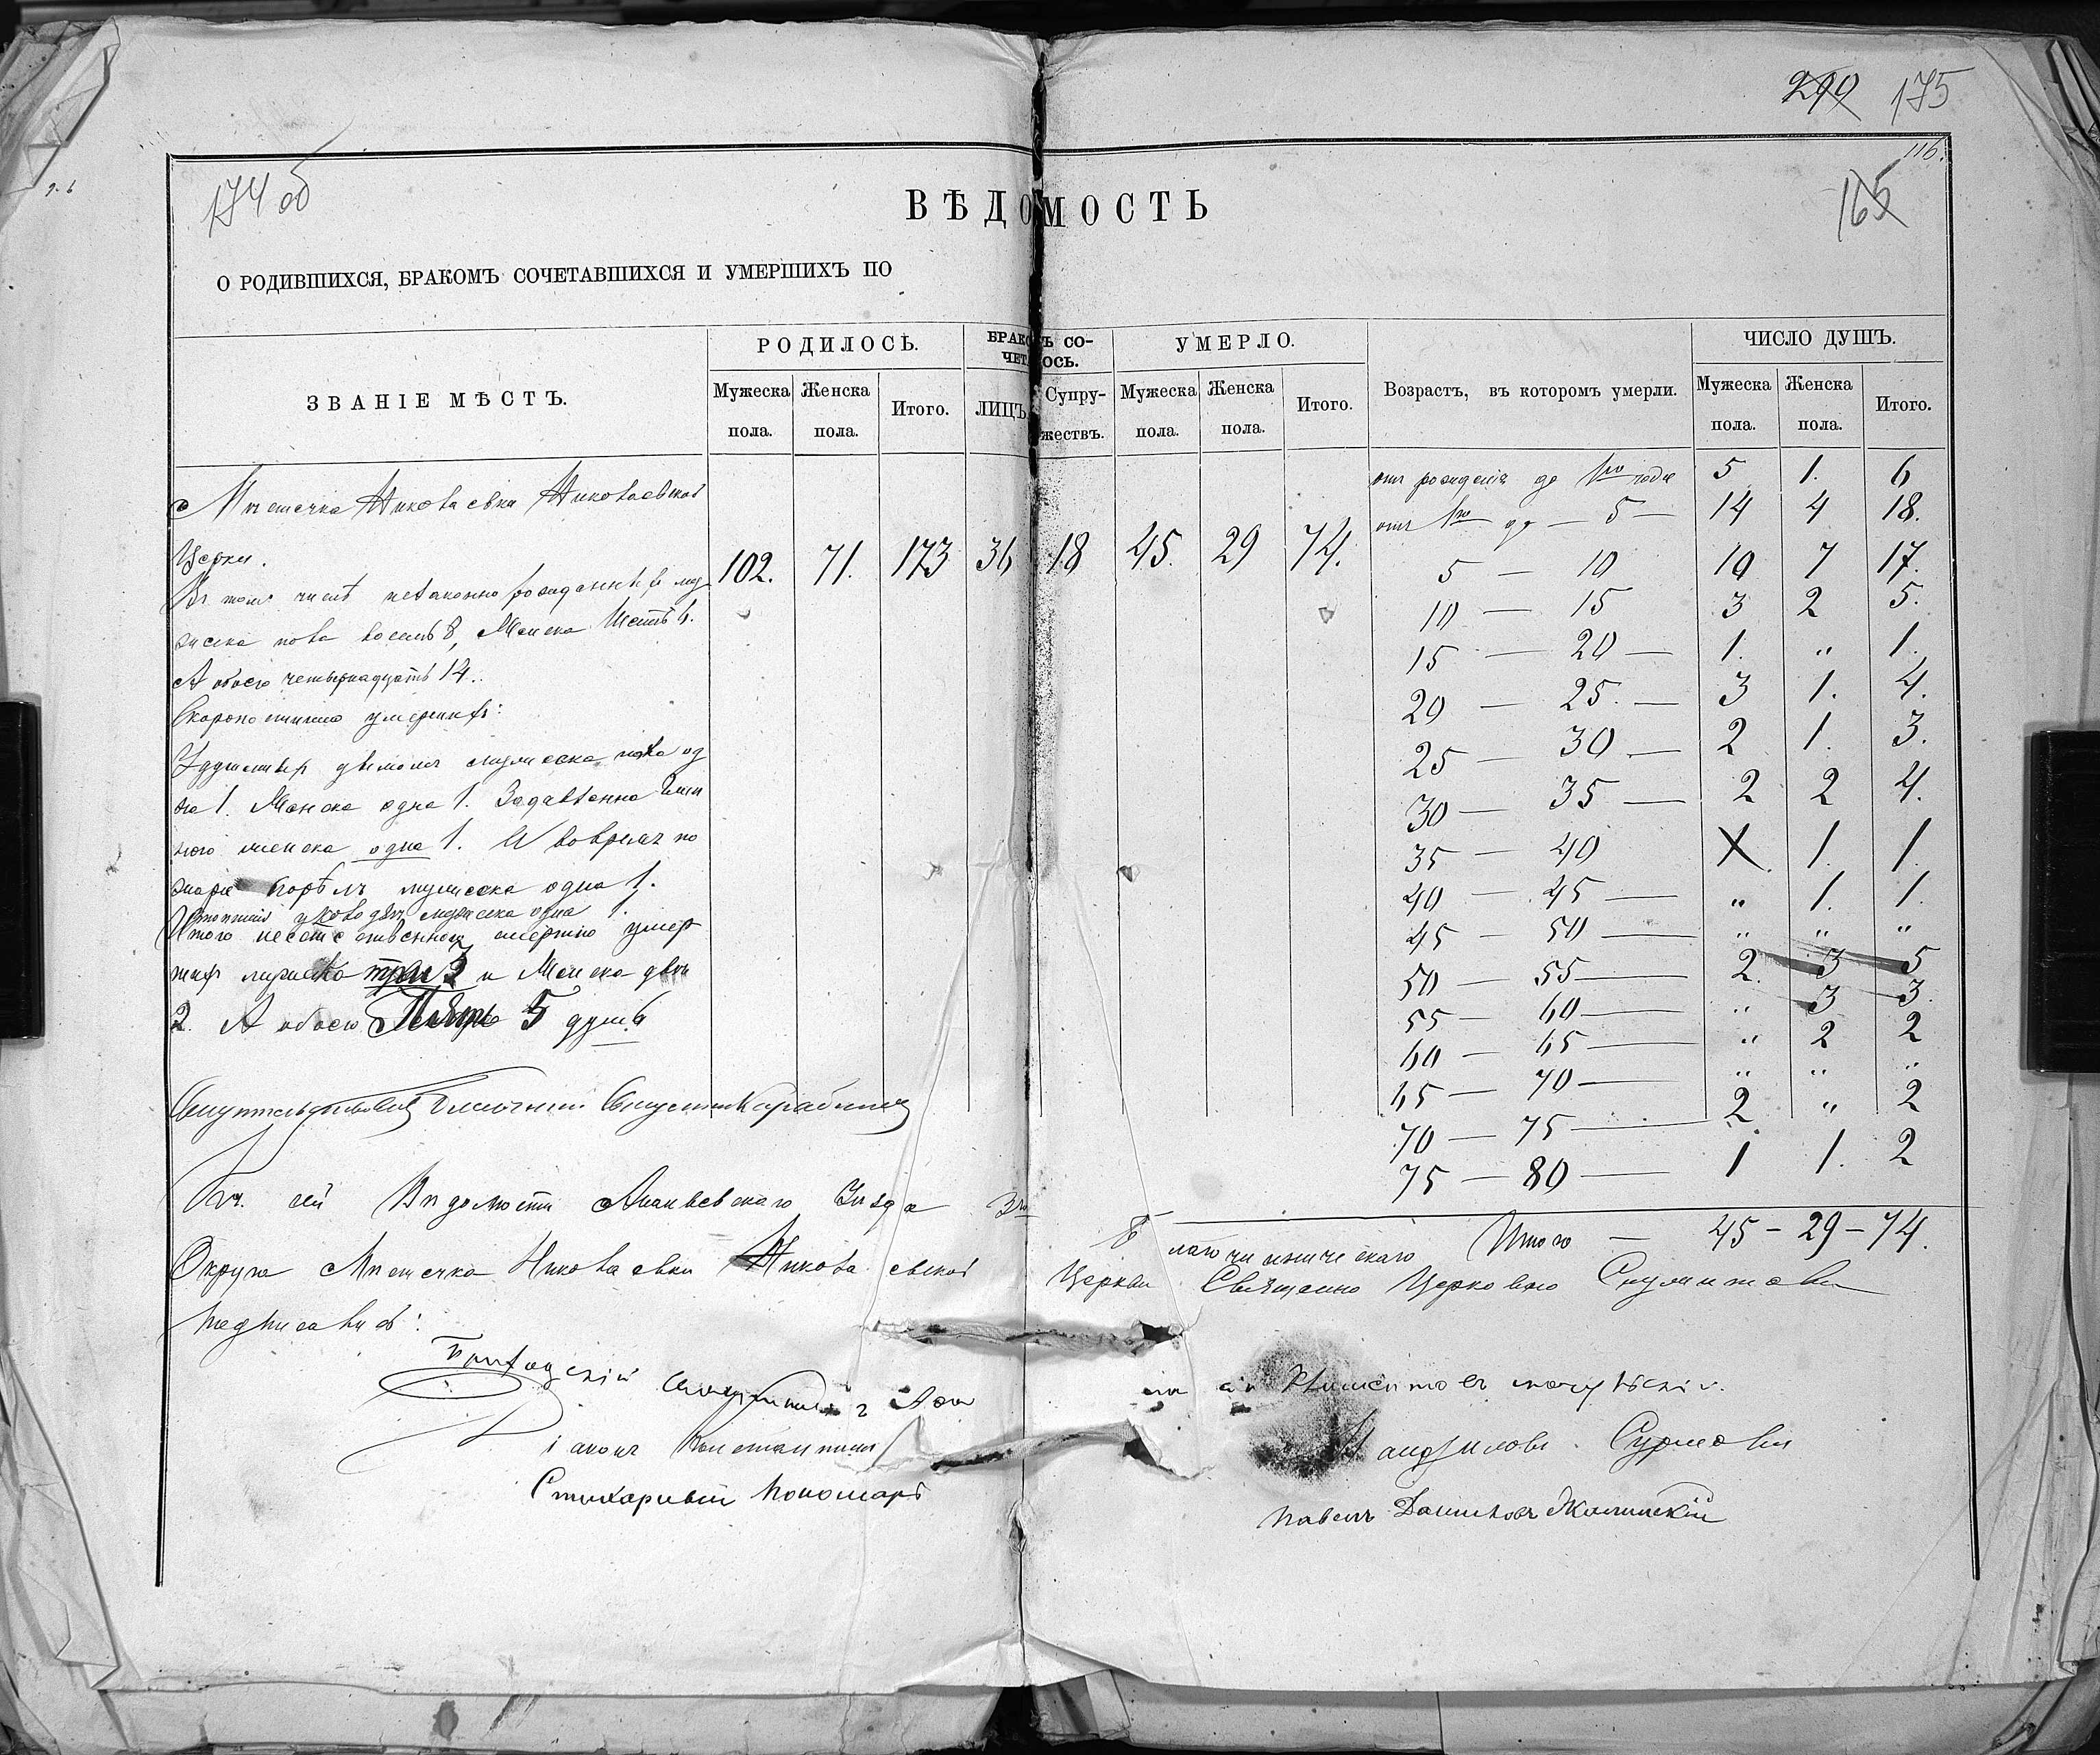 290 175
116.
174 об
165
ВѢДОМОСТЬ
О РОДИВШИХСЯ, БРАКОМЪ СОЧЕТАВШИХСЯ И УМЕРШИХЪ ПО
ЗВАНІЕ МѢСТЪ.
РОДИЛОСЬ.
Мужеска пола.
Женска пола.
Итого.
БРАКОМЪ СО-
ЧЕТ ОСЬ.
ЛИЦЪ
Супру-
жествъ.
УМЕРЛО.
Мужеска пола.
Женска пола.
Итого.
Возрастъ, въ которомъ умерли.
ЧИСЛО ДУШЪ.
Мужеска пола.
Женска пола.
Итого.
Мѣстечка Николаевки Николаевской
Церкви.
102. 71. 173 36 18 45. 29 74.
Въ томъ числѣ незаконнорожденныхъ му
жеска пола восемь 8, Женска Шесть 6.
А обоего четырнадцать 14.
Скоропостижно умершихъ:
на 1. Женска одна 1. Задавлена
женска одна 1. И во время по
жара сгорѣлъ мужеска одна 1.
мужеска одна 1.
Итого неестественною смертію умер
шихъ мужеска три 3 и Женска двѣ
2. А обоего Пять 5 душъ
отъ рожденія до 1го года 5 1. 6
отъ 1го до — 5 — 14 4 18.
5 — 10 10 7 17.
10 — 15 3 2 5.
15 — 20 — 1. „ 1.
20 — 25. — 3 1. 4.
25 — 30 — 2 1. 3.
30 — 35 — 2 2 4.
35 — 40 X 1. 1.
40 — 45 — „ 1. 1.
45 — 50 — „ „ „
50 — 55 — 2. 3 5
55 — 60 — „ 3 3.
60 — 65 — „ 2 2
65 — 70 — „ „ „
70 — 75 — 2 „ 2
75 — 80 — 1 1. 2
Итого — 45 - 29 - 74.
Къ сей Вѣдомости Ананьевскаго Уѣзда 3го Благочинническаго
Округа Мѣстечка Николаевки Николаевской Церкви Священно Церковно Служители
подписались:
Приходскій
Константинъ
Стихарный Пономарь Павелъ Даниловъ